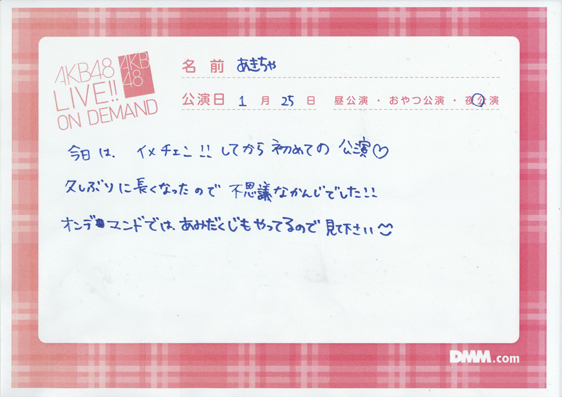 AKB48
LIVE!!
ON DEMAND
AKB
48
名 前 あきちゃ
公演日 1 月 25 日 昼公演・おやつ公演・夜公演
今日は、イメチェン!!してから初めての公演♡
久しぶりに長くなったので不思議なかんじでした!!
オンデマンドでは、あみだくじもやってるので見て下さい
DMM.com